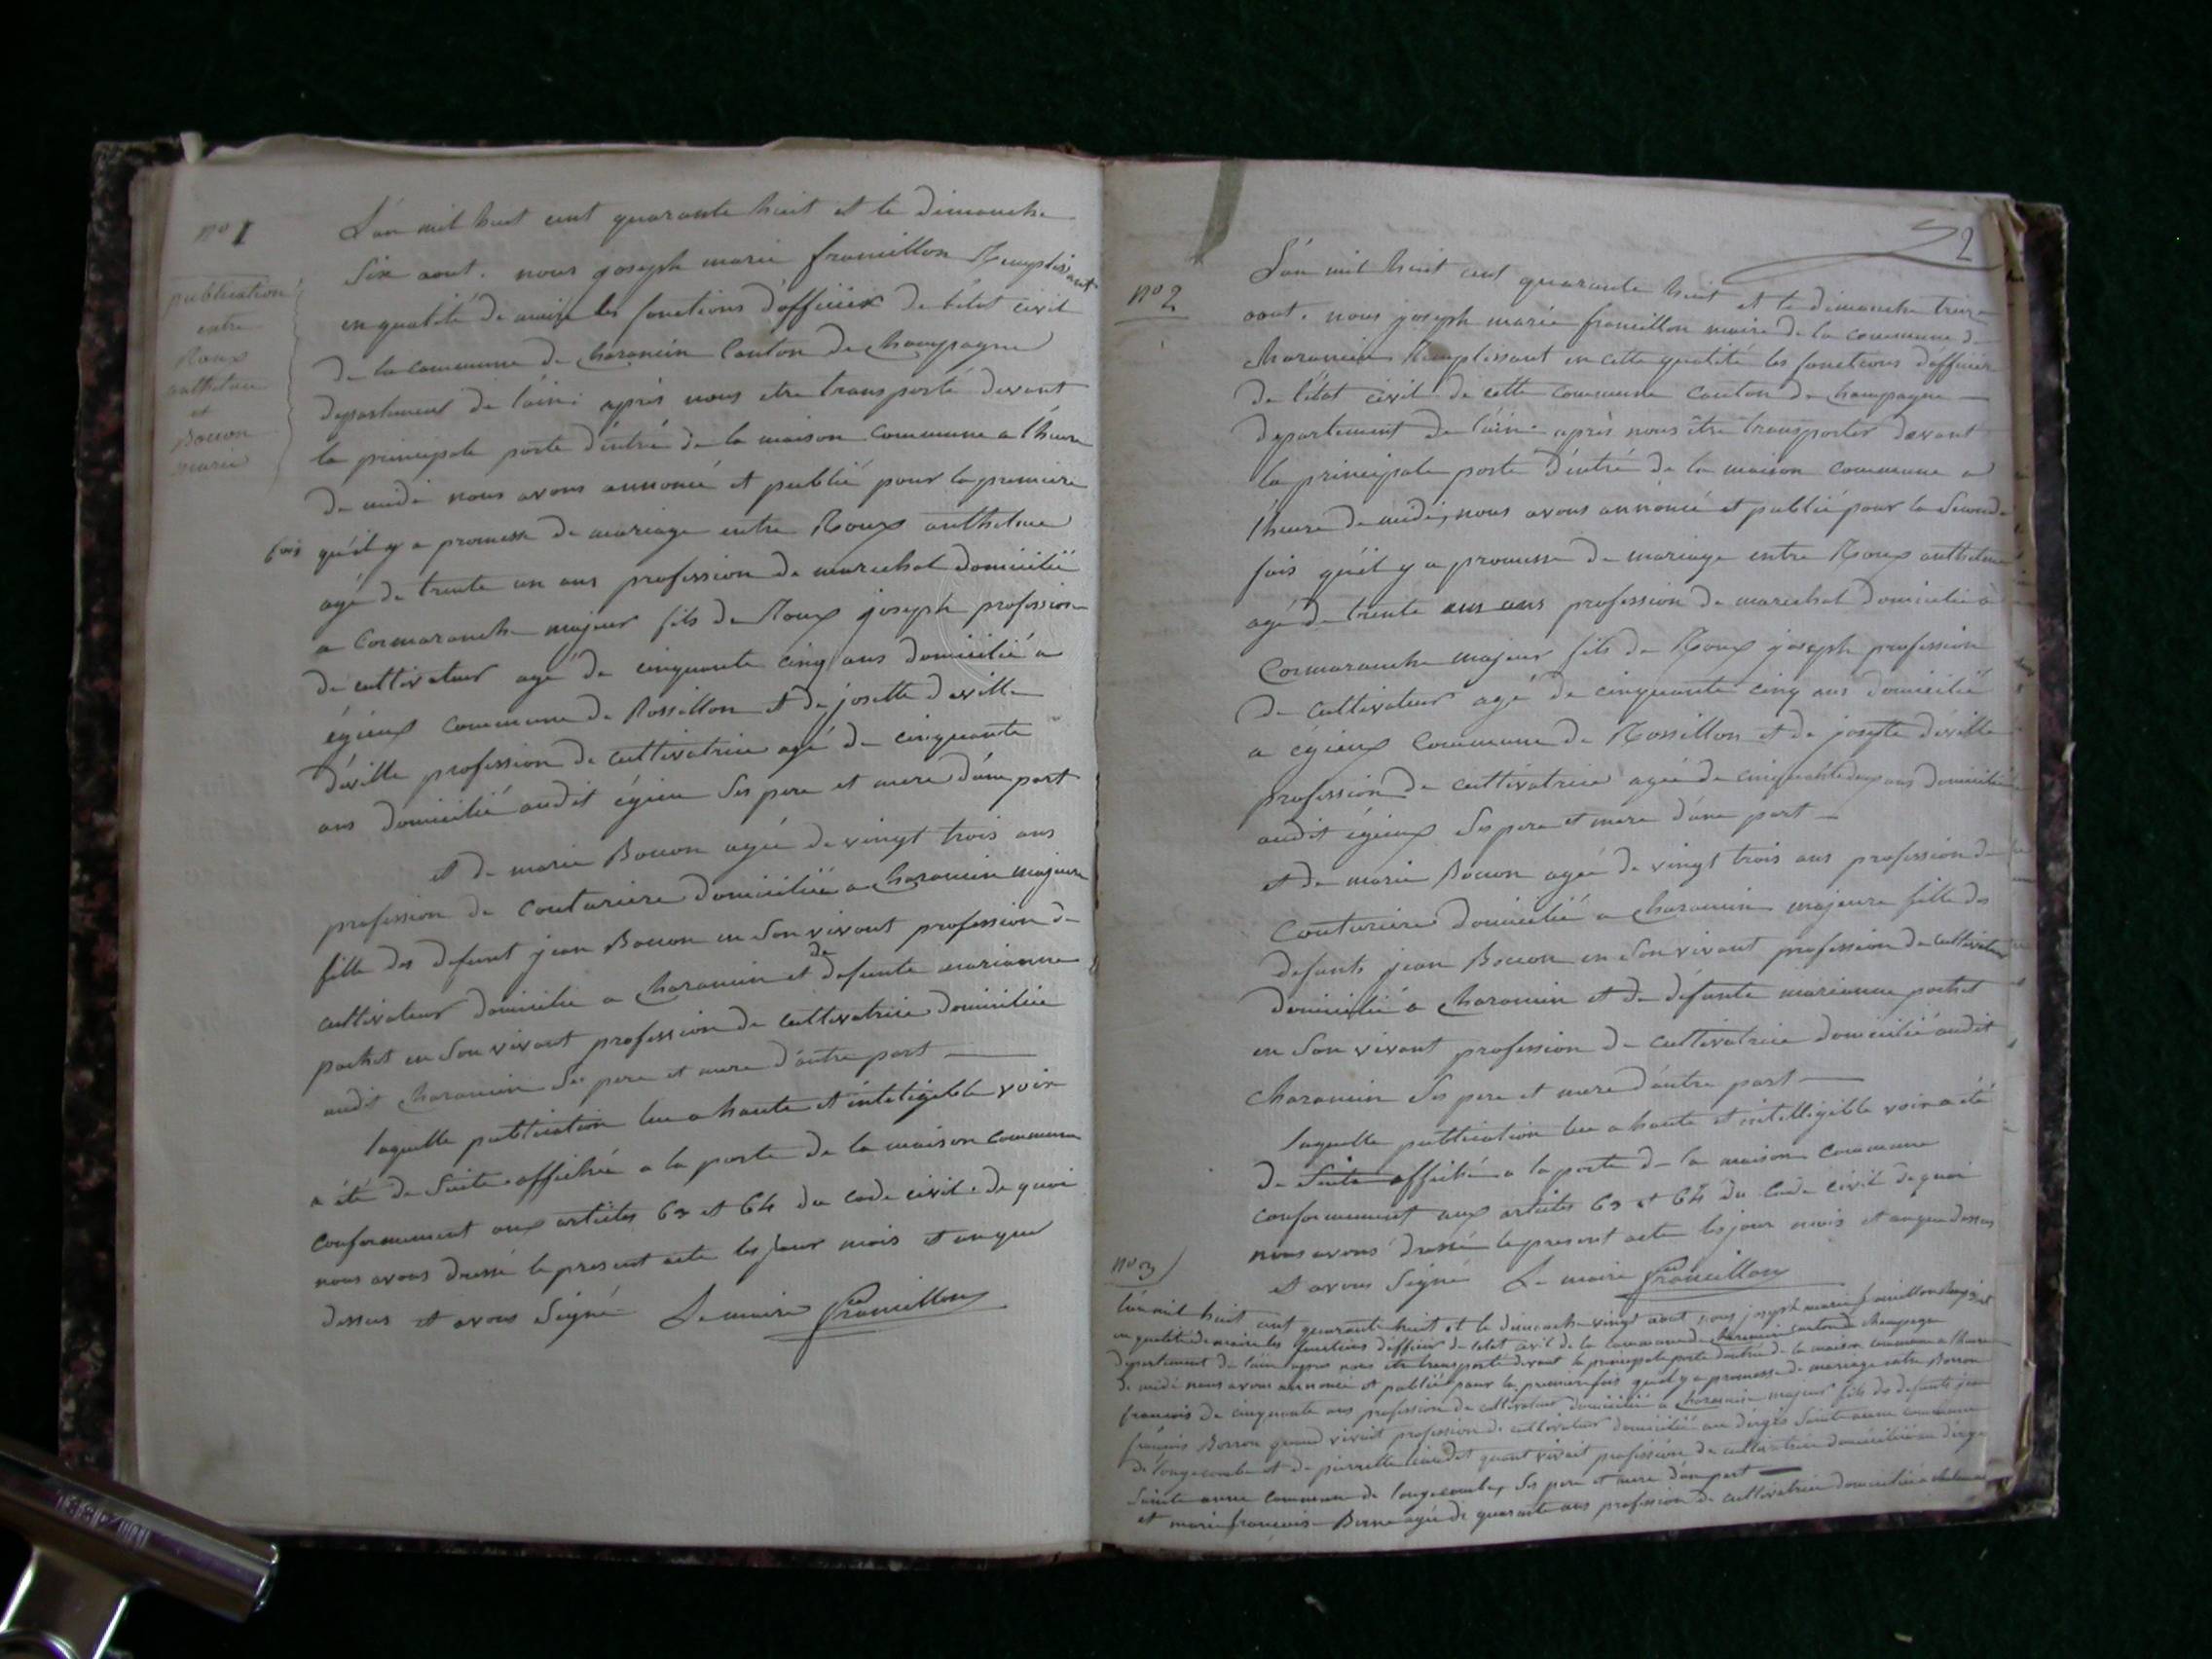 no 1
publication
entre
Roux
anthelme
et
Bouon
marie
L'an mil huit cent quarante huit et le dimanche
Six aout. nous joseph marie francillon Remplissant
en qualité de maire les fonctions d'officier de l'état civil
de la commune de charancin Canton de champagne
departement de l'ain: après nous etre transporté devant
la principale porte d'entré de la maison commune a l'heure
de midi nous avons annoncé et publié pour la première
fois qu'il y a promesse de mariage entre Roux anthelme
agé de trente un ans profession de marechal domicilié
a Cormaranche majeur fils de Roux joseph profession
de cultivateur agé de cinquante cinq ans domicilié a
égieux commune de Rossillon et de josette deville
deville profession de cultivatrice agé de cinquante
ans domicilié audit égieu Ses pere et mere d'une part
et de marie Bouon agée de vingt trois ans
profession de couturiere domiciliée a charancin majeure
fille des defunt jean Bouon en Son vivant profession de
cultivateur domicilie a charancin et de defunte marianne
pochet en Son vivant profession de cultivatrice domiciliée
audit charancin Ses pere et mere d'autre part
laquelle publication lue a haute et inteligible voix
a été de Suite affichée a la porte de la maison commune
conformement aux articles 63 et 64 du code civil. de quoi
nous avons dressé le present acte les jour mois et an que
dessus et avons Signé Le maire francillon
2
no 2
L'an mil huit cent quarante huit et le dimanche treize
aout. nous joseph marie francillon maire de la commune de
charancin Remplissant en cette qualité les fonctions d'officier
de l'état civil de cette commune canton de champagne
departement de l'ain. après nous être transporter devant
la principale porte d'entré de la maison commune a
l'heure de midi, nous avons annoncé et publié pour la Seconde
fois qu'il y a promesse de mariage entre Roux anthelme
agé de trente ans profession de marechal domicilié à
Cormaranche majeur fils de Roux joseph profession
de cultivateur agé de cinquante cinq ans domicilié
a égieux Commune de Rossillon et de josette déville
profession de cultivatrice agée de cinquante deux ans domiciliée
audit égieux Ses pere et mere d'une part
et de marie Bouon agée de vingt trois ans profession de
Couturiere domicilié a charancin majeure fille des
defunts jean Bouon en Son vivant profession de cultivateur
domicilié a charancin et de défunte marianne pochet
en Son vivant profession de cultivatrice domicilié audit
charancin Ses pere et mere d'autre part
laquelle publication lue a haute et intelligible voix a été
de Suite affiché a la porte de la maison commune
conformement aux articles 63 et 64 du Code civil de quoi
nous avons dressé le present acte les jour mois et an que dessus
et avons Signé Le maire francillon
no 3
l'an mil huit cent quarante huit et le dimanche vingt aout nous joseph marie francillon
en qualité de maire les fonctions d'officier de l'etat civil de la commune de charancin canton de champagne
departement de l'ain apres nous etre transporté devant la principale porte d'entré de la maison commune a l'heure
de midi nous avons annoncé et publié pour la premiere fois qu'il y a promesse de mariage entre Borron
francois de cinquante ans profession de cultivateur domicilié a charancin majeur fils de defunts jean
francois Borron quand vivait profession de cultivateur domicilié Sainte anne commune
de longecombe et de pierrette quant vivait profession de cultivatrice domiciliée
Sainte anne commune de longecombe, Ses pere et mere d'une part
et marie francoise agée de quarante ans profession de cultivatrice domiciliée a